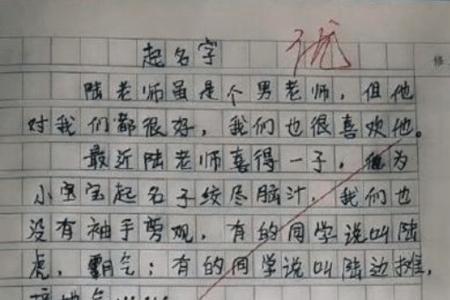 起名字
陆老师虽是个男老师，但他
对我们都很好，我们也很喜欢他。
最近陆老师喜得一子，他为
小宝宝起名子绞尽脑汁，我们也
没有袖手剪观，有的同学说叫陆
虎，霸气；有的同学说叫陆边摊，
接地气